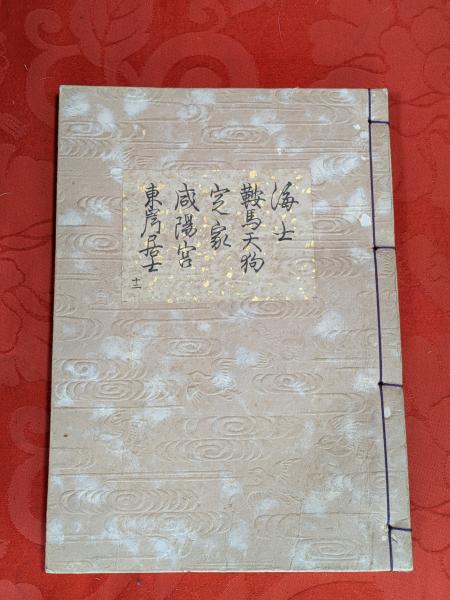 海士
鞍馬天狗
定家
咸陽宮
東岸居士
十二